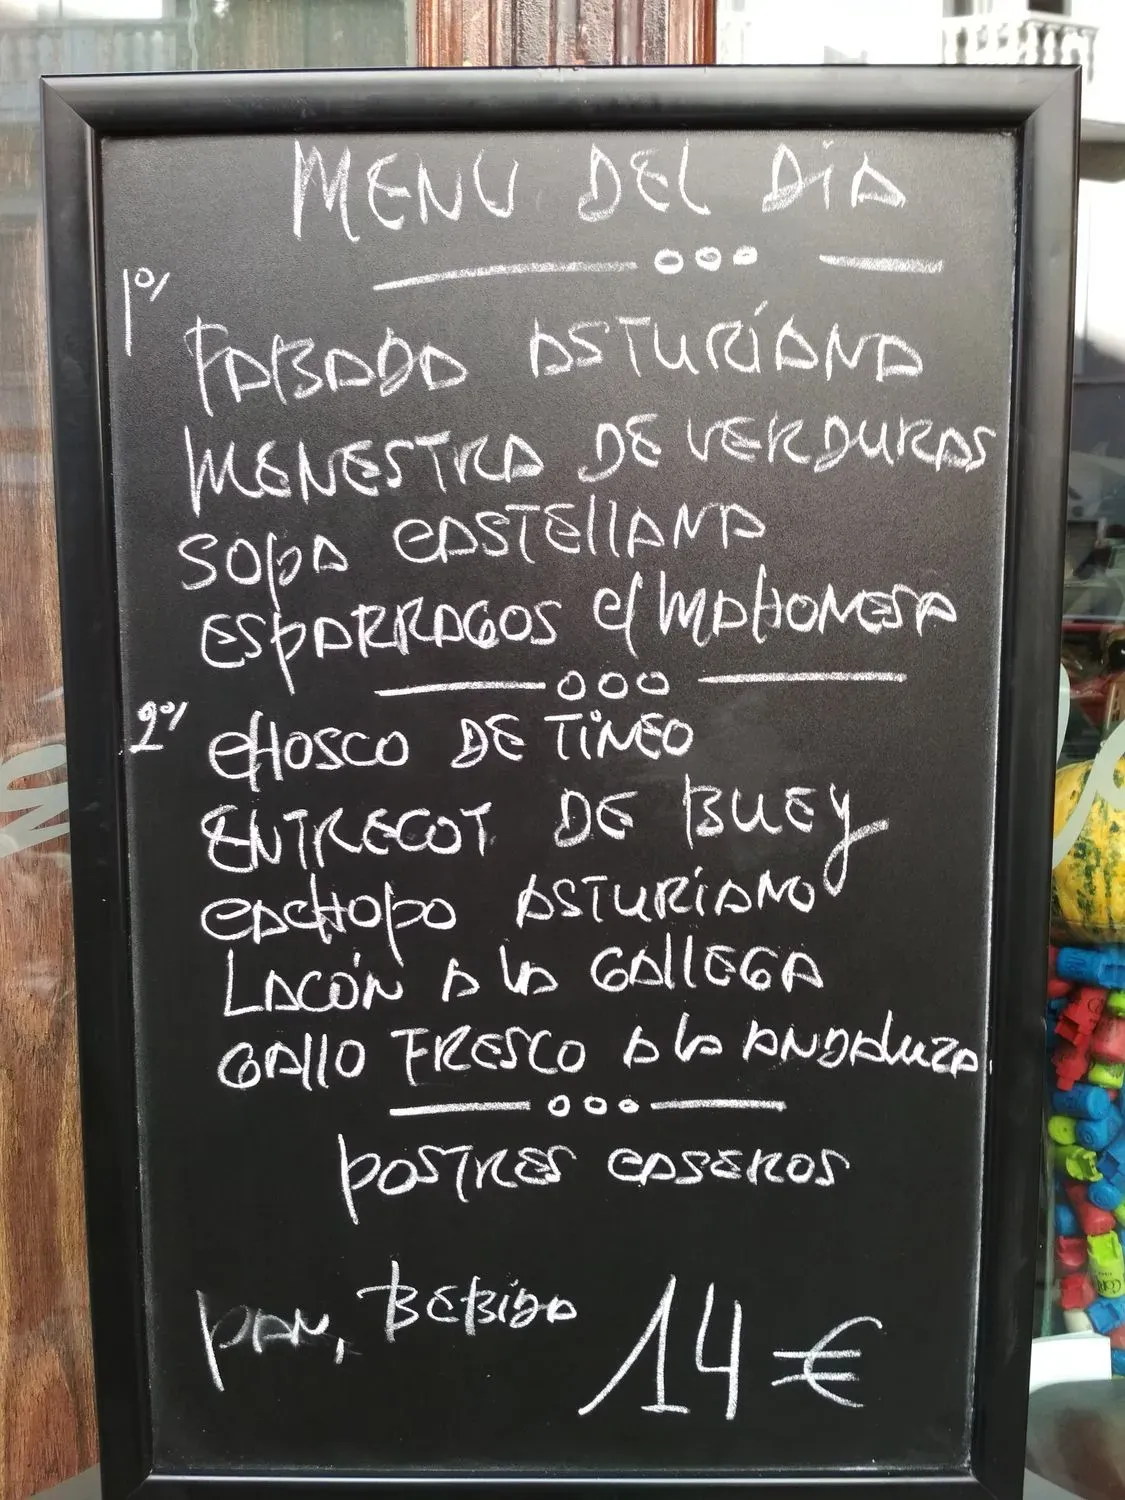 MENU DEL DíA
1º/
FABADA ASTURíANA
MENESTRA DE VERDURAS
SOPA CASTELLANA
ESPARRAGOS C/ MAHONESA
2º/
CHOSCO DE TiNEO
ENTRECOT DE BUEY
CACHOPO ASTURiANO
LACÓN A LA GALLEGA
GALLO FRESCO A LA ANDALUZA
POSTRES CASEROS
PAN, BEBiDA 14 €